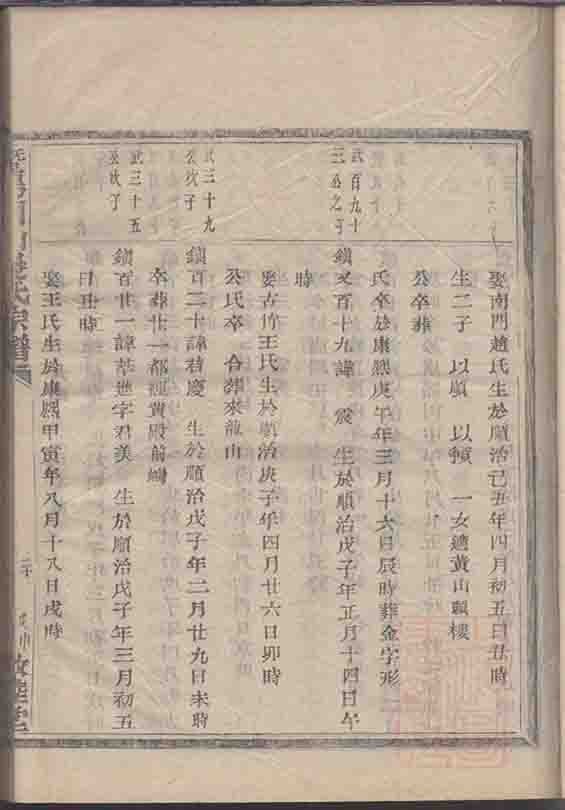 娶南門趙氏生於順治己丑年四月初五日丑時
生二子 以順 以頓 一女適黃山 樓
公卒葬
氏卒於康熙庚午年三月十六日辰時葬金字形
武百九十
三公之子
鎮 百十九諱 震 生於順治戊子年正月十四日午
時
娶古竹王氏生於順治庚子年四月廿六日卯時
公氏卒 合葬來龍山
武三十九
公次子
鎮百二十諱君慶 生於順治戊子年二月廿九日未時
卒葬廿一都 殿前
武三十五
公次子
鎮百廿一諱基進字君美 生於順治戊子年三月初五
日丑時
娶王氏生於康熙甲寅年八月十八日戌時
氏宗譜